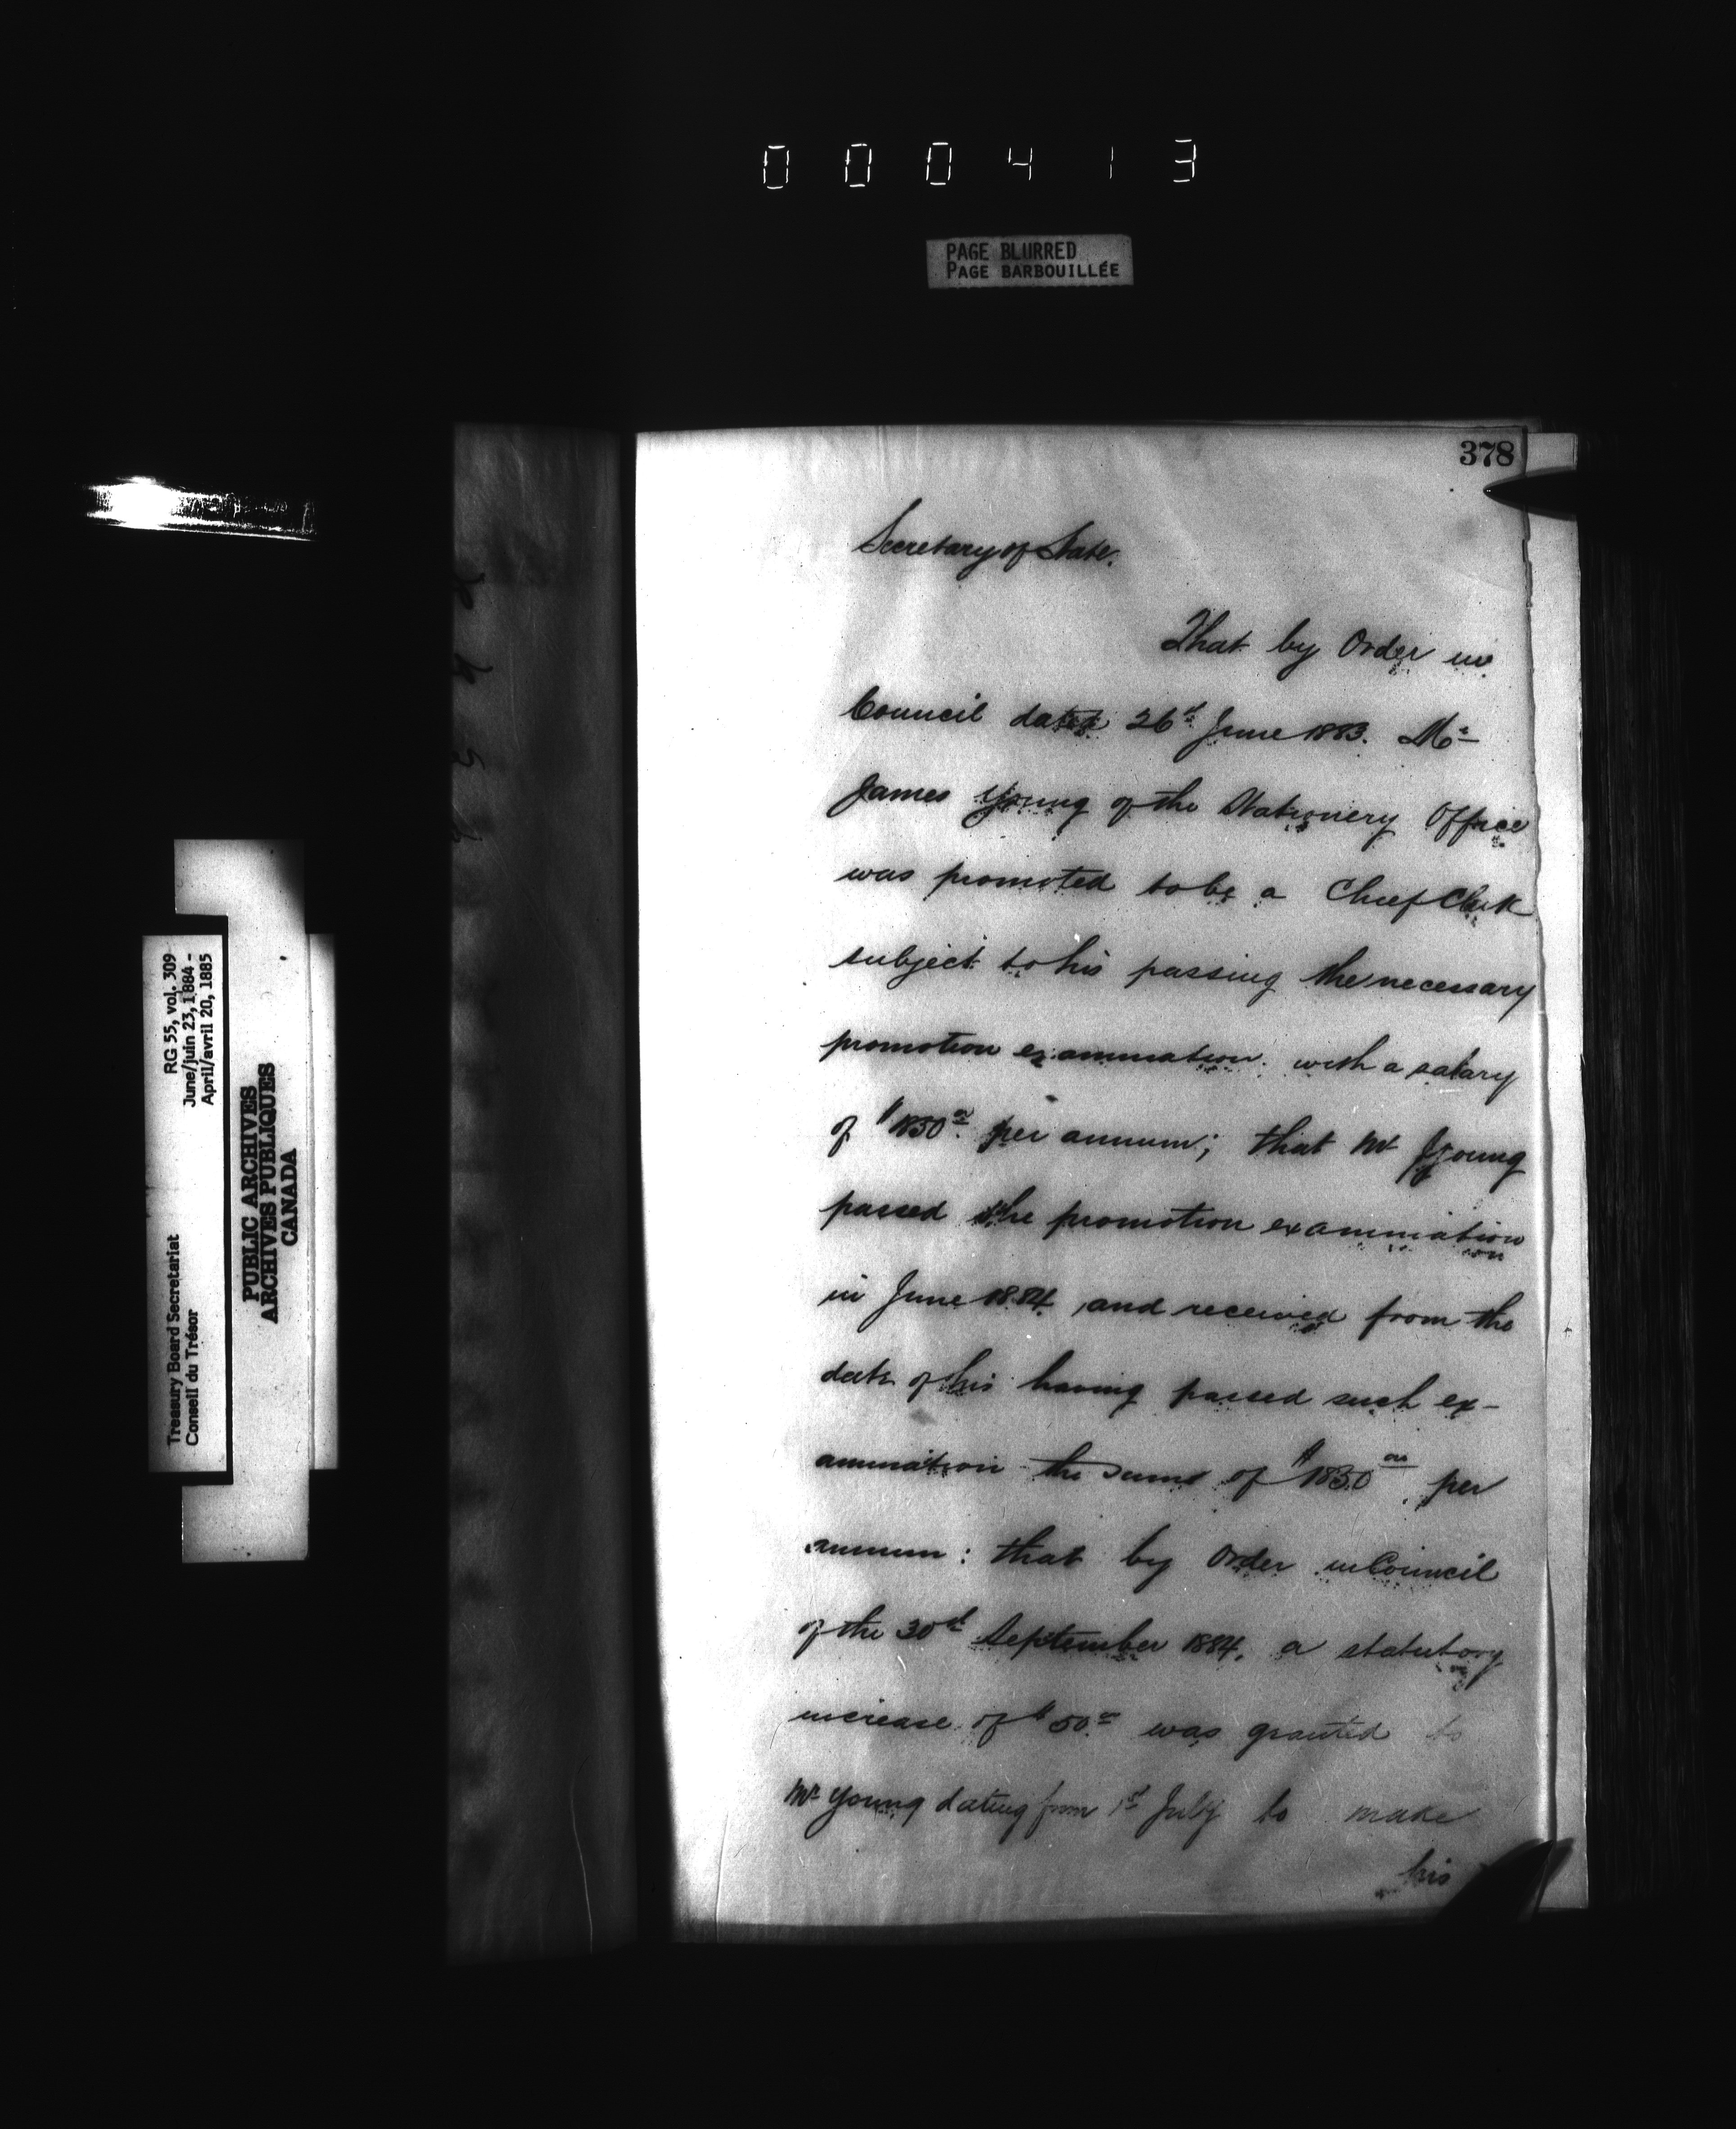 000413
PAGE BLURRED
PAGE BARBOUILLÉE
378
Secretary of State.
That by Order in
Council dated 26th June 1883. Mr
James Young of the Stationery Office
was promoted to be a Chief Clerk
subject to his passing the necessary
promotion examination with a salary
of $1850.00 per annum; that Mr Young
passed the promotion examination
in June 1884, and received from the
date of his having passed such ex-
amination the sum of $1850.00 per
annum: that by Order in Council
of the 30th September 1884, a statutory
increase of $50.00 was granted to
Mr Young dating from 1st July to make
his
RG 55, vol. 309
June/juin 23, 1884 -
April/avril 20, 1885
Treasury Board Secretariat
Conseil du Trésor
PUBLIC ARCHIVES
ARCHIVES PUBLIQUES
CANADA